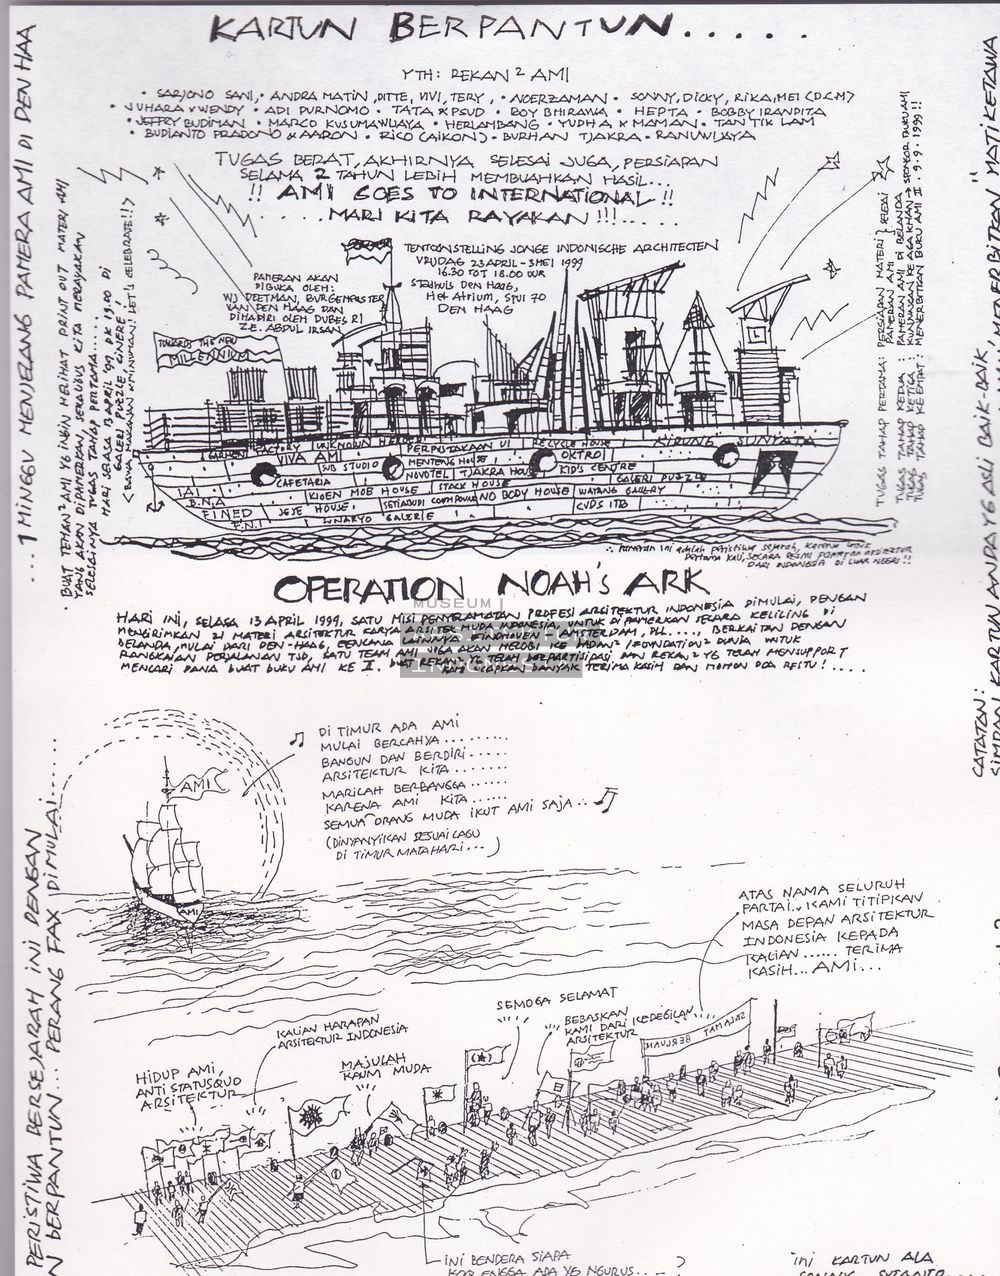 KARTUN BERPANTUN.....
YTH: REKAN2 AMI
• SARJONO SANI, • ANDRA MATIN, DITTE, VIVI, TERY, • NOERZAMAN • SONNY, DICKY, RIKA, MEI (D.C.M)
• JUHARA & WENDY • ADI PURNOMO • TATA & PSUD • BOY BHIRAWA • HEPTA • BOBBY IRANDITA
• JEFFRY BUDIMAN • MARCO KUSUMAWIJAYA • HERLAMBANG • YUDHA & MAMAN • TAN TIK LAM
• BUDIANTO PRADONO & AARON • RICO (AIKON) • BURHAN TJAKRA • RANUWIJAYA
TUGAS BERAT, AKHIRNYA SELESAI JUGA, PERSIAPAN
SELAMA 2 TAHUN LEBIH MEMBUAHKAN HASIL...
!! AMI GOES TO INTERNATIONAL !!
..... MARI KITA RAYAKAN !!! .....
TENTOONSTELLING JONGE INDONISCHE ARCHITECTEN
VRIJDAG 23 APRIL - 3 MEI 1999
16.30 TOT 18.00 UUR
STADHUIS DEN HAAG,
HET ATRIUM, SPUI 70
DEN HAAG
PAMERAN AKAN
DIBUKA OLEH:
WJ DEETMAN, BURGEMEESTER
VAN DEN HAAG DAN
DIHADIRI OLEH DUBES RI
Z.E. ABDUL IRSAN.
TOWARDS THE NEW
MILLENNIUM
GARMEN FACTORY
UNKNOWN HEROES
PERPUSTAKAAN UI
RECYCLE HOUSE
KIDUNG SUNYATA
VIVA AMI
SUB STUDIO
MENTENG HOUSE
OKTROI
CAFETARIA
NOVOTEL
TJAKRA HOUSE
KID'S CENTRE
STACK HOUSE
GALERI PUZZLE
I.A.I
B.N.A
FINED
F.N.I
KIOEN MOE HOUSE
SETIABUDI
NO BODY HOUSE
WATANG GALLERY
JEJE HOUSE
CVDS ITB
WINARYO GALERIE
∴ PAMERAN INI ADALAH PERISTIWA SEJARAH, KARENA UNTUK
PERTAMA KALI, SECARA RESMI PAMERAN ARSITEKTUR
DARI INDONESIA DI LUAR NEGRI !!
... 1 MINGGU MENJELANG PAMERAN AMI DI DEN HAA
• BUAT TEMAN2 AMI YG INGIN MELIHAT PRINT OUT MATERI AMI
YANG AKAN DIPAMERKAN, SEKALIGUS KITA MERAYAKAN
SELESAINYA TUGAS TAHAP PERTAMA.....
HARI SELASA 13 APRIL '99, PK 19.00 DI
GALERI PUZZLE, CINERE!
(BAWA MAKANAN & MINUMAN! LET'S CELEBRATE!!)
TUGAS TAHAP PERTAMA: PERSIAPAN MATERI } SELESAI
PAMERAN AMI
TUGAS TAHAP KEDUA : PAMERAN AMI DI BELANDA
TUGAS TAHAP KETIGA : KUNJUNGAN KE AGA KHAN → SPONSOR BUKU AMI
TUGAS TAHAP KEEMPAT : MENERBITKAN BUKU AMI II • 9.9.1999!!
OPERATION NOAH'S ARK
MUSEUM
HARI INI, SELASA 13 APRIL 1999, SATU MISI PENYELAMATAN PROFESI ARSITEKTUR INDONESIA DIMULAI, DENGAN
MENGIRIMKAN 21 MATERI ARSITEKTUR KARYA ARSITEK MUDA INDONESIA, UNTUK DI PAMERKAN SECARA KELILING DI
BELANDA, MULAI DARI DEN-HAAG, RENCANA LAINNYA EINDHOVEN - AMSTERDAM, DLL....., BERKAITAN DENGAN
RANGKAIAN PERJALANAN TSB, SATU TEAM AMI JUGA AKAN MELOBI KE BADAN2 / FOUNDATION2 DUNIA UNTUK
MENCARI DANA BUAT BUKU AMI KE II. BUAT REKAN2 YG TELAH BERPARTISIPASI DAN REKAN2 YG TELAH MENSUPPORT
KAMI UCAPKAN BANYAK TERIMA KASIH DAN MOHON DOA RESTU!.....
DI TIMUR ADA AMI
MULAI BERCAHYA..........
BANGUN DAN BERDIRI......
ARSITEKTUR KITA........
MARILAH BERBANGGA......
KARENA AMI KITA......
SEMUA ORANG MUDA IKUT AMI SAJA...
(DINYANYIKAN SESUAI LAGU
DI TIMUR MATAHARI...)
AMI
AMI
ATAS NAMA SELURUH
PARTAI.. KAMI TITIPKAN
MASA DEPAN ARSITEKTUR
INDONESIA KEPADA
KALIAN...... TERIMA
KASIH... AMI...
SEMOGA SELAMAT
BEBASKAN
KAMI DARI KEDEGILAN
ARSITEKTUR
KALIAN HARAPAN
ARSITEKTUR INDONESIA
MAJULAH
KAUM MUDA
HIDUP AMI,
ANTI STATUSQUO
ARSITEKTUR
SELAMAT BERJUANG
INI BENDERA SIAPA
KOQ ENGGA ADA YG NGURUS....?
INI KARTUN ALA
PERISTIWA BERSEJARAH INI DENGAN
N BERPANTUN... PERANG FAX DIMULAI.....
CATATAN:
SIMPAN KARTUN ANDA YG ASLI BAIK-BAIK,
MENERBITKAN "MATI KETAWA